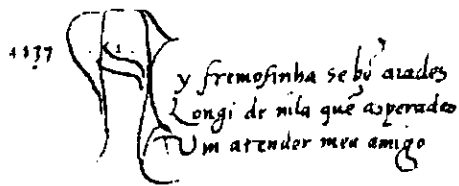 1137
Ay fremosinha se bē̃ aiades
Longi de uila quē asperades
Vim atender meu amigo